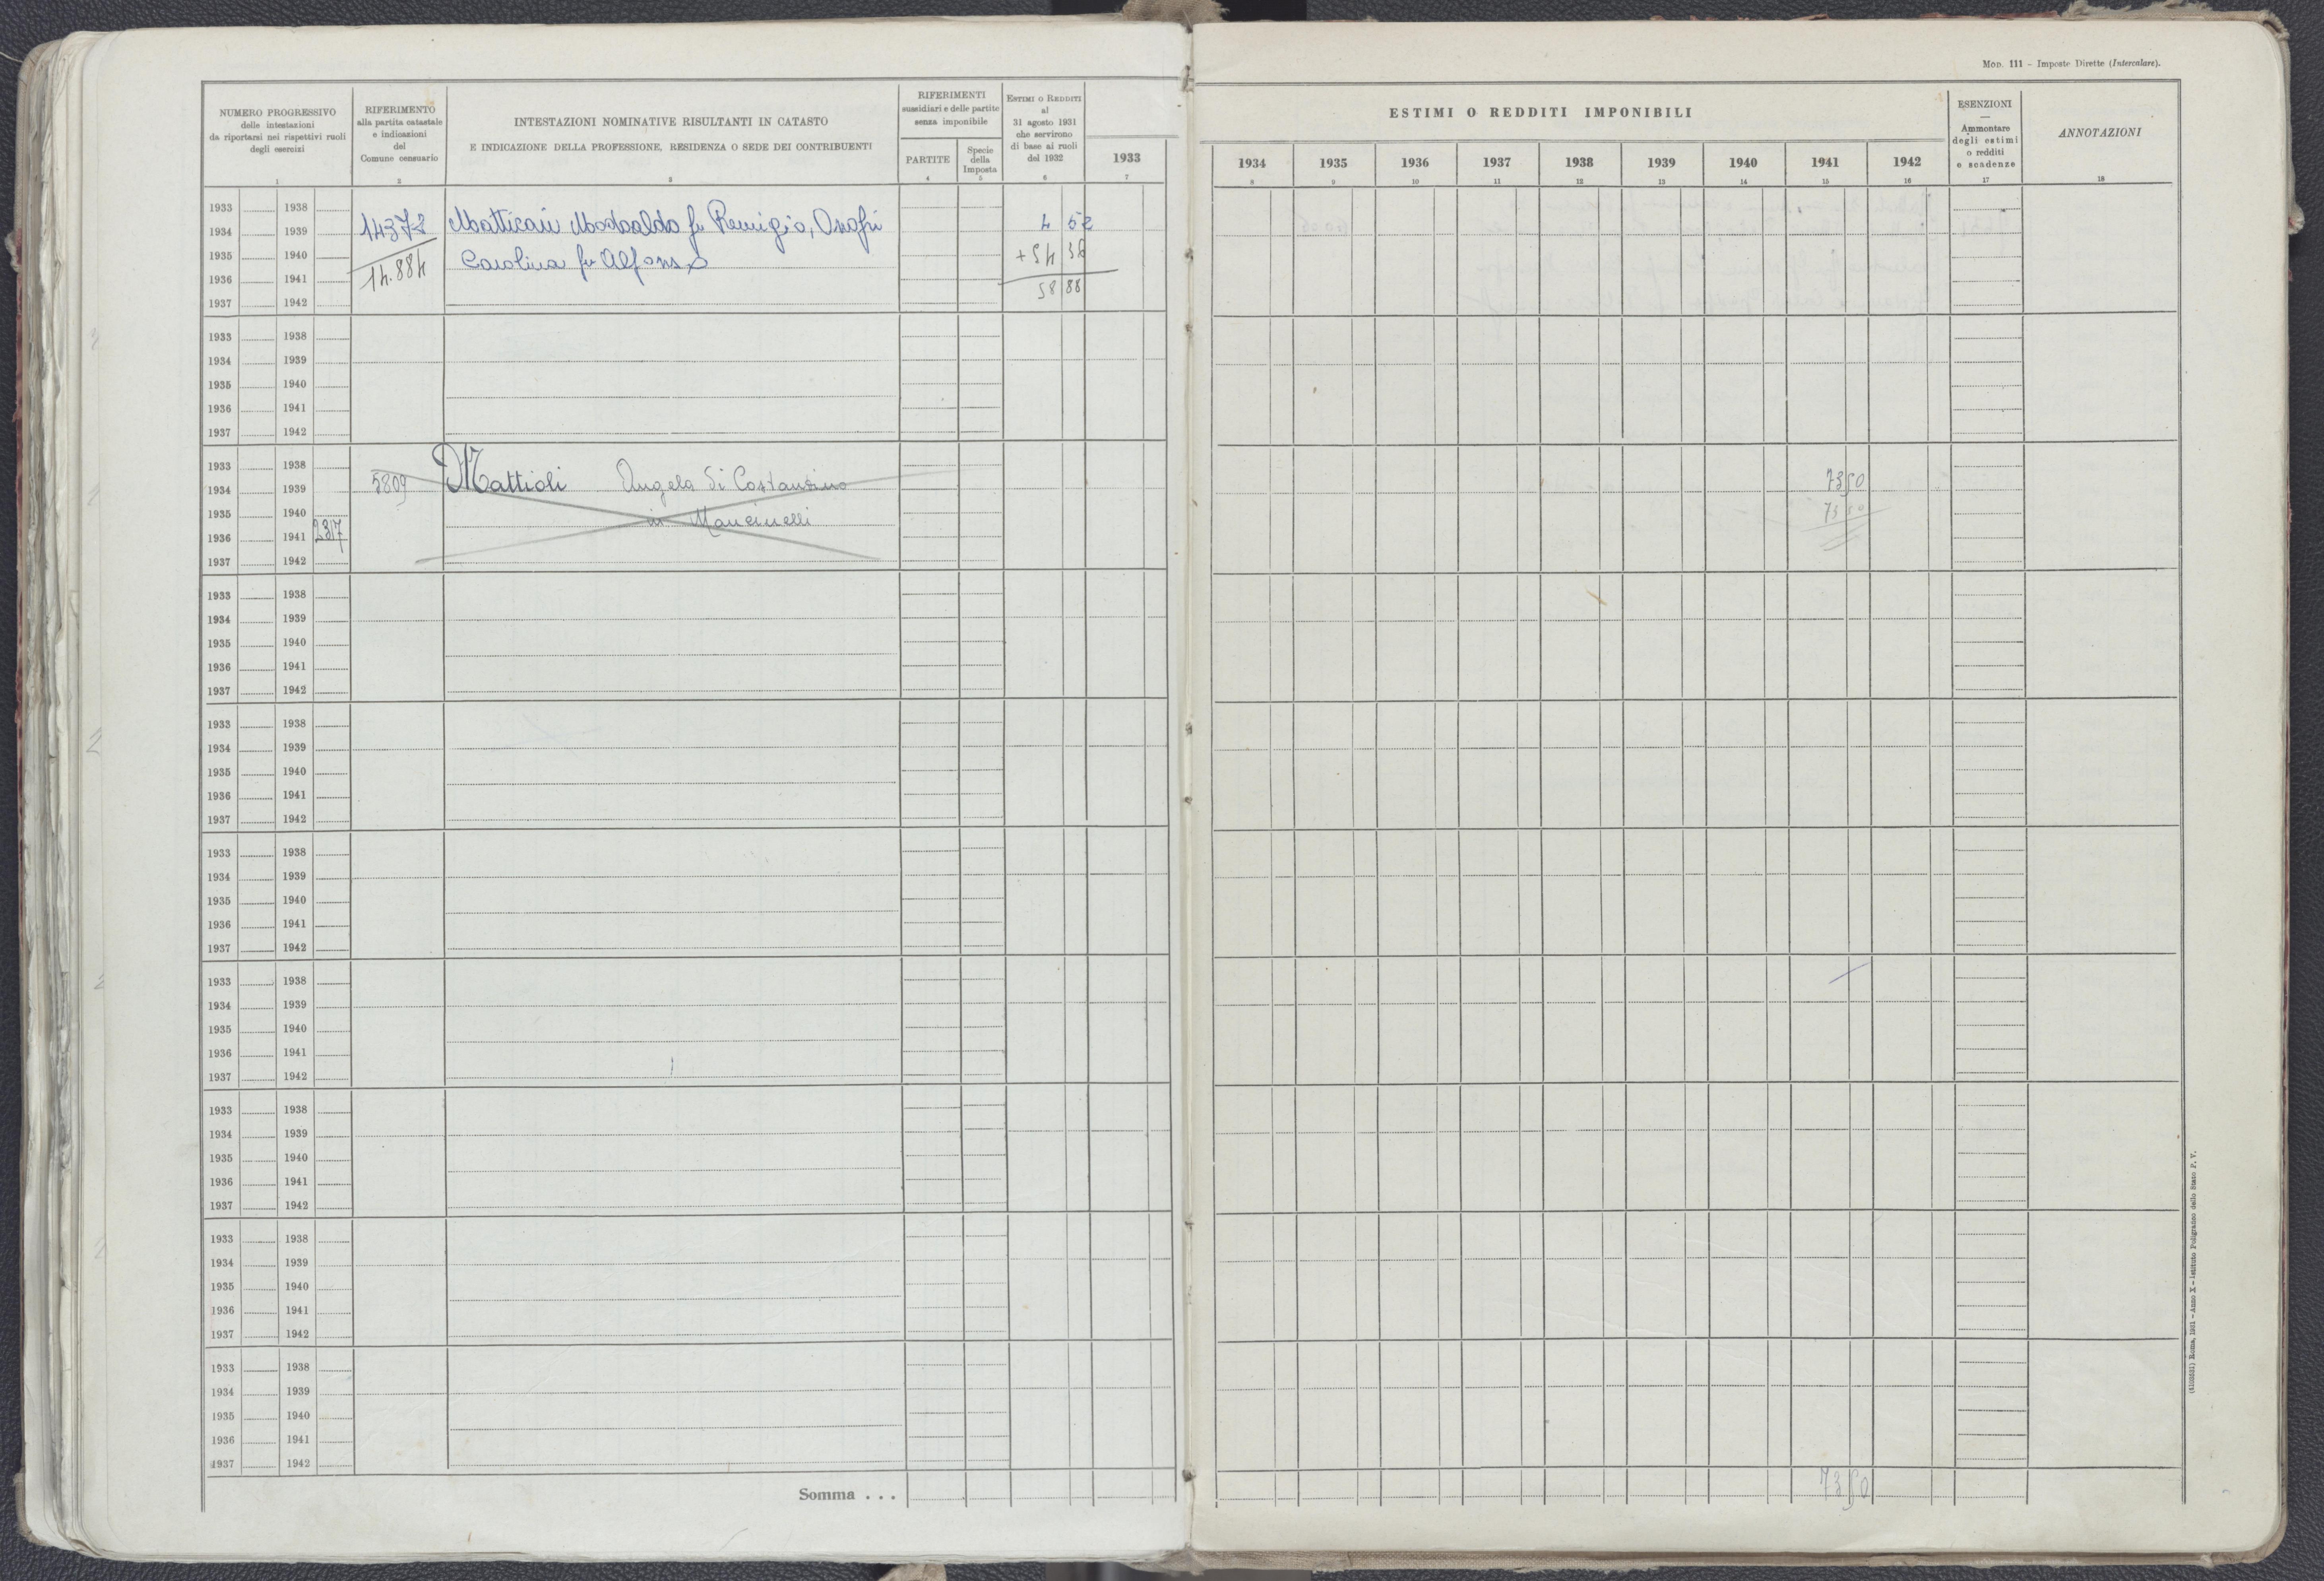 Mod. 111 - Imposte Dirette (Intercalare).
NUMERO PROGRESSIVO
delle intestazioni
da riportarsi nei rispettivi ruoli
degli esercizi
1
RIFERIMENTO
alla partita catastale
e indicazioni
del
Comune censuario
2
INTESTAZIONI NOMINATIVE RISULTANTI IN CATASTO
E INDICAZIONE DELLA PROFESSIONE, RESIDENZA O SEDE DEI CONTRIBUENTI
3
RIFERIMENTI
sussidiari e delle partite
senza imponibile
PARTITE
4
Specie
della
Imposta
5
Estimi o Redditi
al
31 agosto 1931
che servirono
di base ai ruoli
del 1932
6
1933
7
ESTIMI O REDDITI IMPONIBILI
1934 1935 1936 1937 1938 1939 1940 1941 1942
8 9 10 11 12 13 14 15 16
ESENZIONI
—
Ammontare
degli estimi
o redditi
e scadenze
17
ANNOTAZIONI
18
1933 1938
1934 1939 fu Remigio, Onofri 4 52
1935 1940 Carolina fu Alfonso + 54 36
1936 1941 14.884
1937 1942 58 88
1933 1938
1934 1939
1935 1940
1936 1941
1937 1942
1933 1938
1934 1939 5809 Mattioli Angela di Costantino 73 50
1935 1940 in Mancinelli 73 50
1936 1941 2317
1937 1942
1933 1938
1934 1939
1935 1940
1936 1941
1937 1942
1933 1938
1934 1939
1935 1940
1936 1941
1937 1942
1933 1938
1934 1939
1935 1940
1936 1941
1937 1942
1933 1938
1934 1939
1935 1940
1936 1941
1937 1942
1933 1938
1934 1939
1935 1940
1936 1941
1937 1942
1933 1938
1934 1939
1935 1940
1936 1941
1937 1942
1933 1938
1934 1939
1935 1940
1936 1941
1937 1942
Somma . . . 73 50
Roma, 1931 - Anno X - Istituto Poligrafico dello Stato P. V.